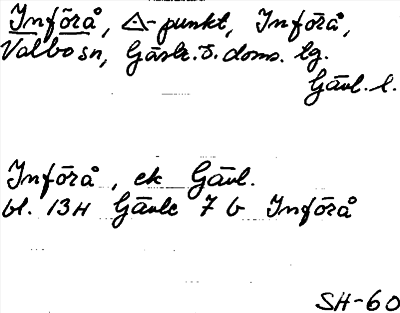 Införå, △-punkt, Införå,
Valbo sn, Gästr. ö. doms. tg.
Gävl. l.
Införå, ek Gävl.
bl. 13H Gävle 7 b Införå
SH-60